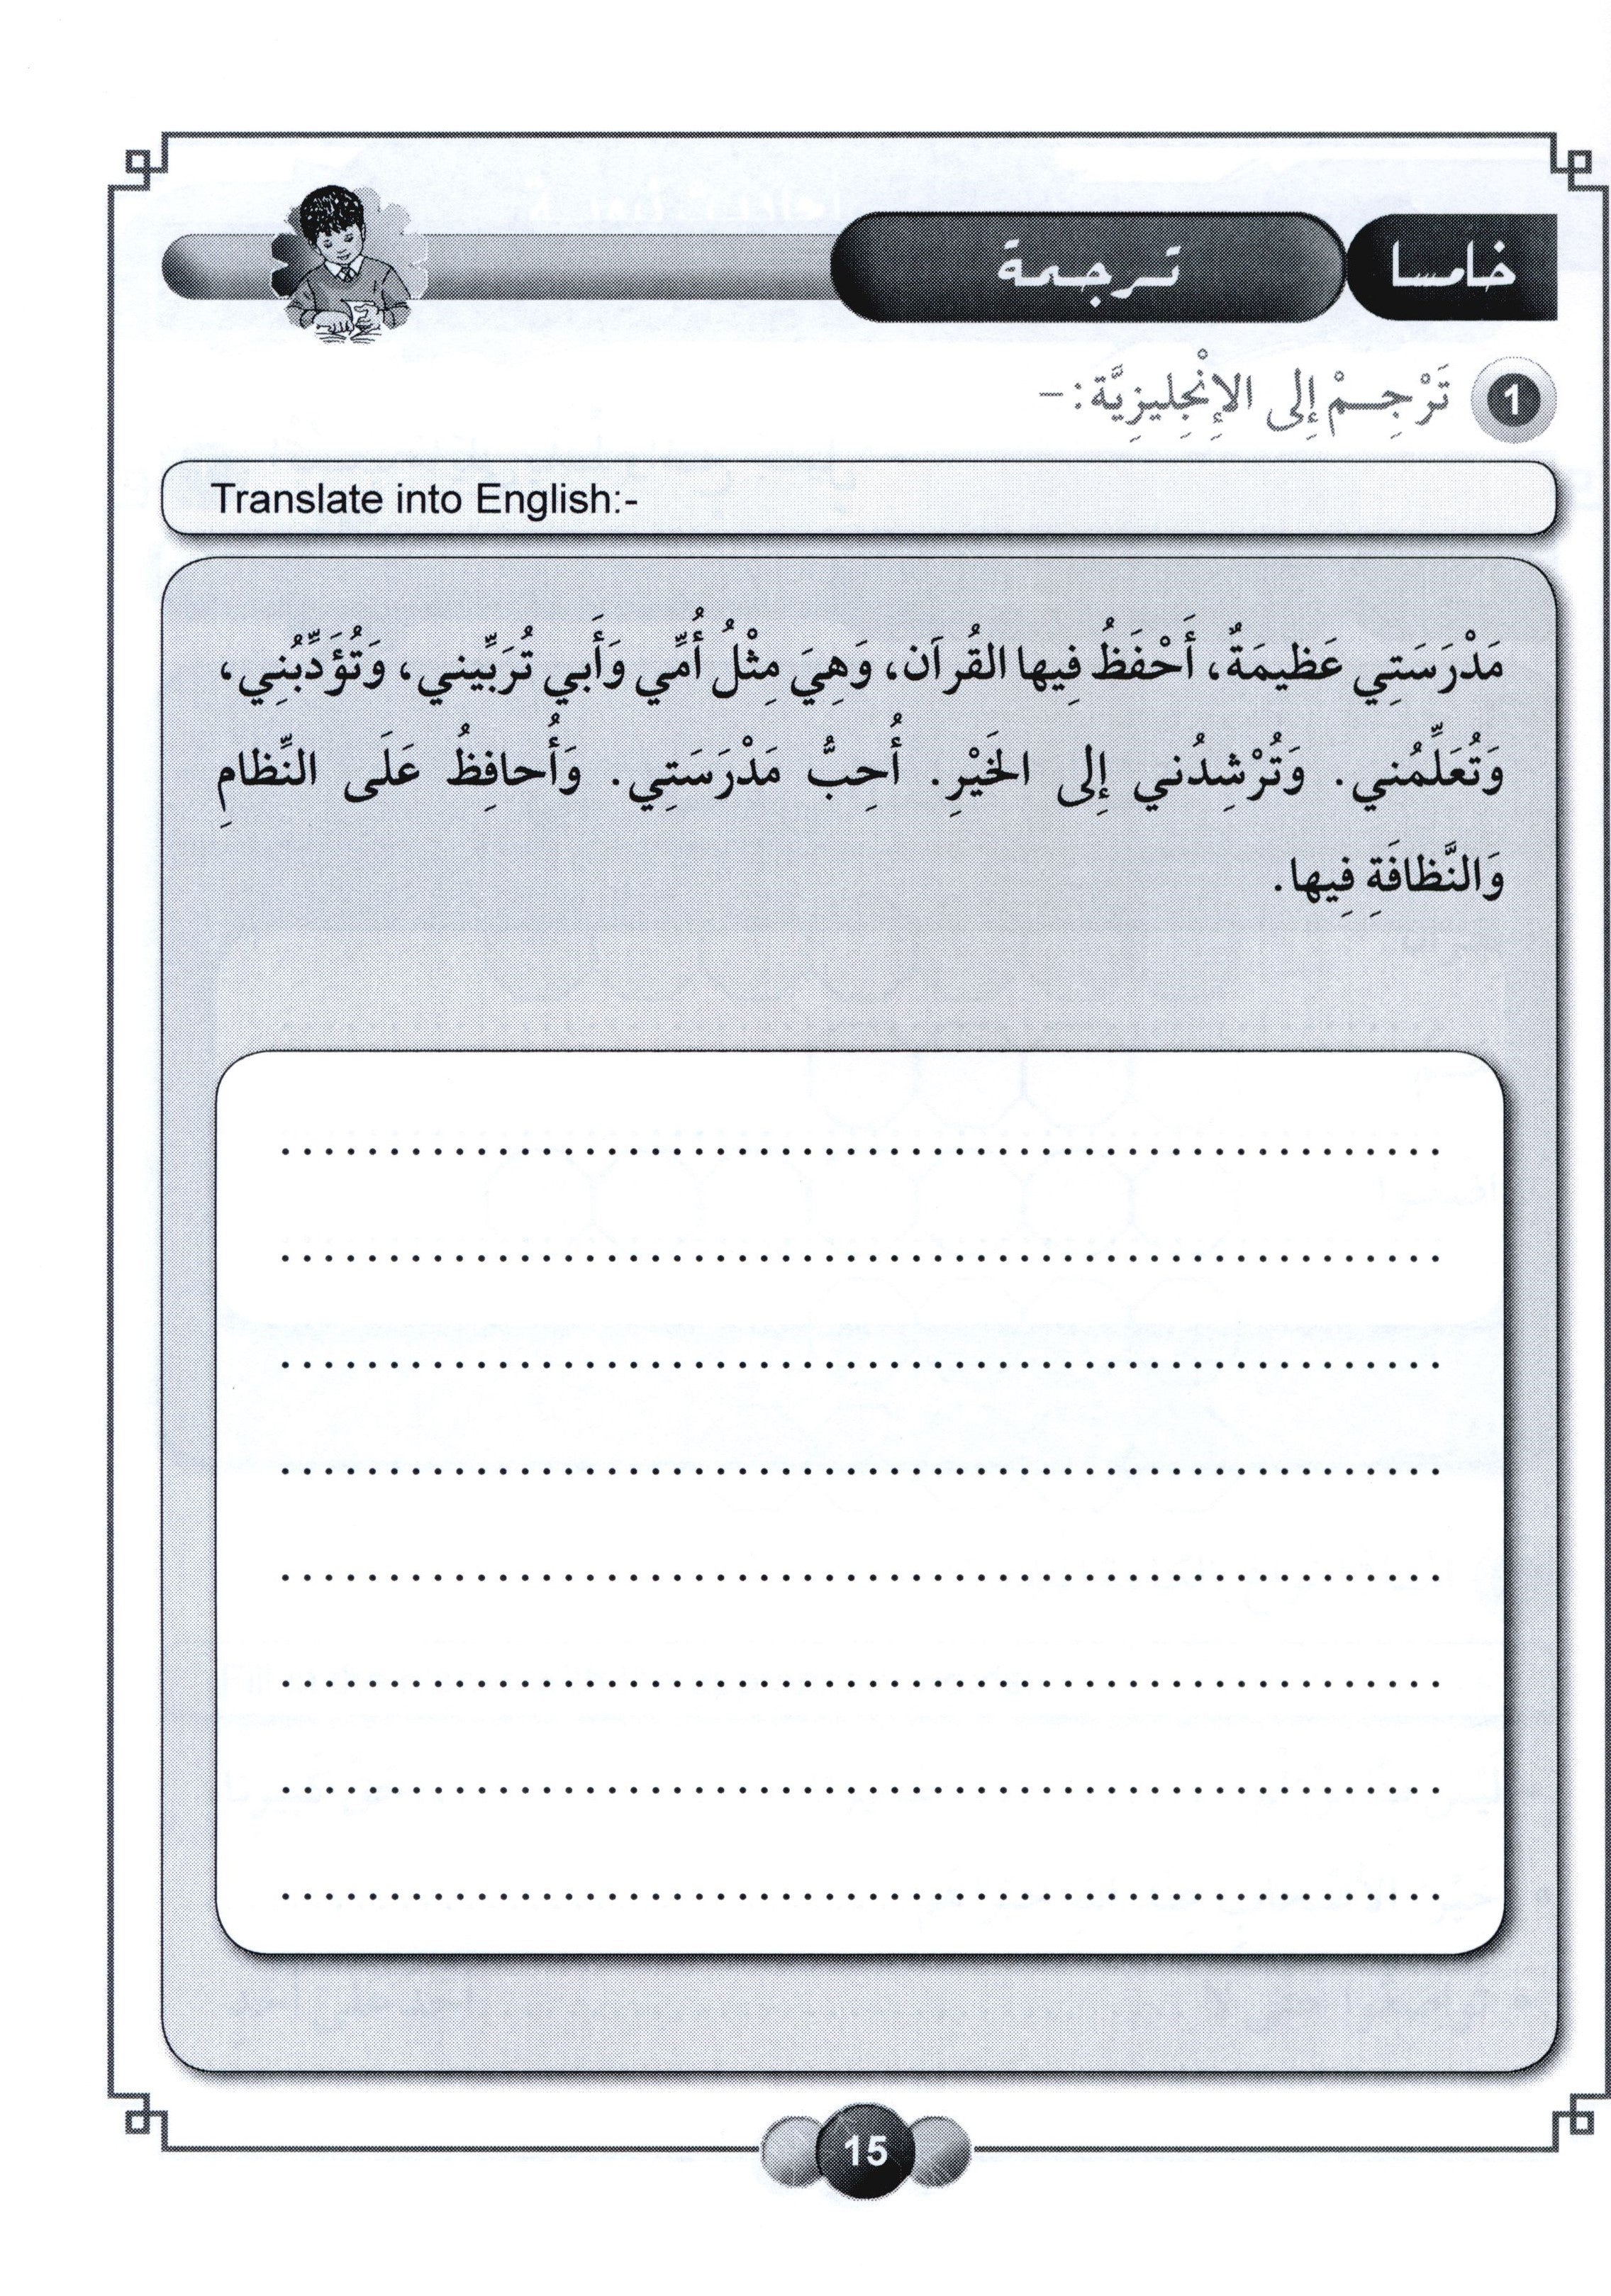 خامسا
ترجمة
1 تَرْجِمْ إِلى الإِنْجِلِيزِيَّة:-
Translate into English:-
مَدْرَسَتِي عَظيمَةٌ، أَحْفَظُ فِيها القُرآن، وَهِيَ مِثْلُ أُمِّي وَأَبي تُرَبِّيني، وَتُؤَدِّبُنِي،
وَتُعَلِّمُني. وَتُرْشِدُني إِلى الخَيْرِ. أُحِبُّ مَدْرَسَتِي. وَأُحافِظُ عَلَى النِّظامِ
وَالنَّظافَةِ فِيها.
15